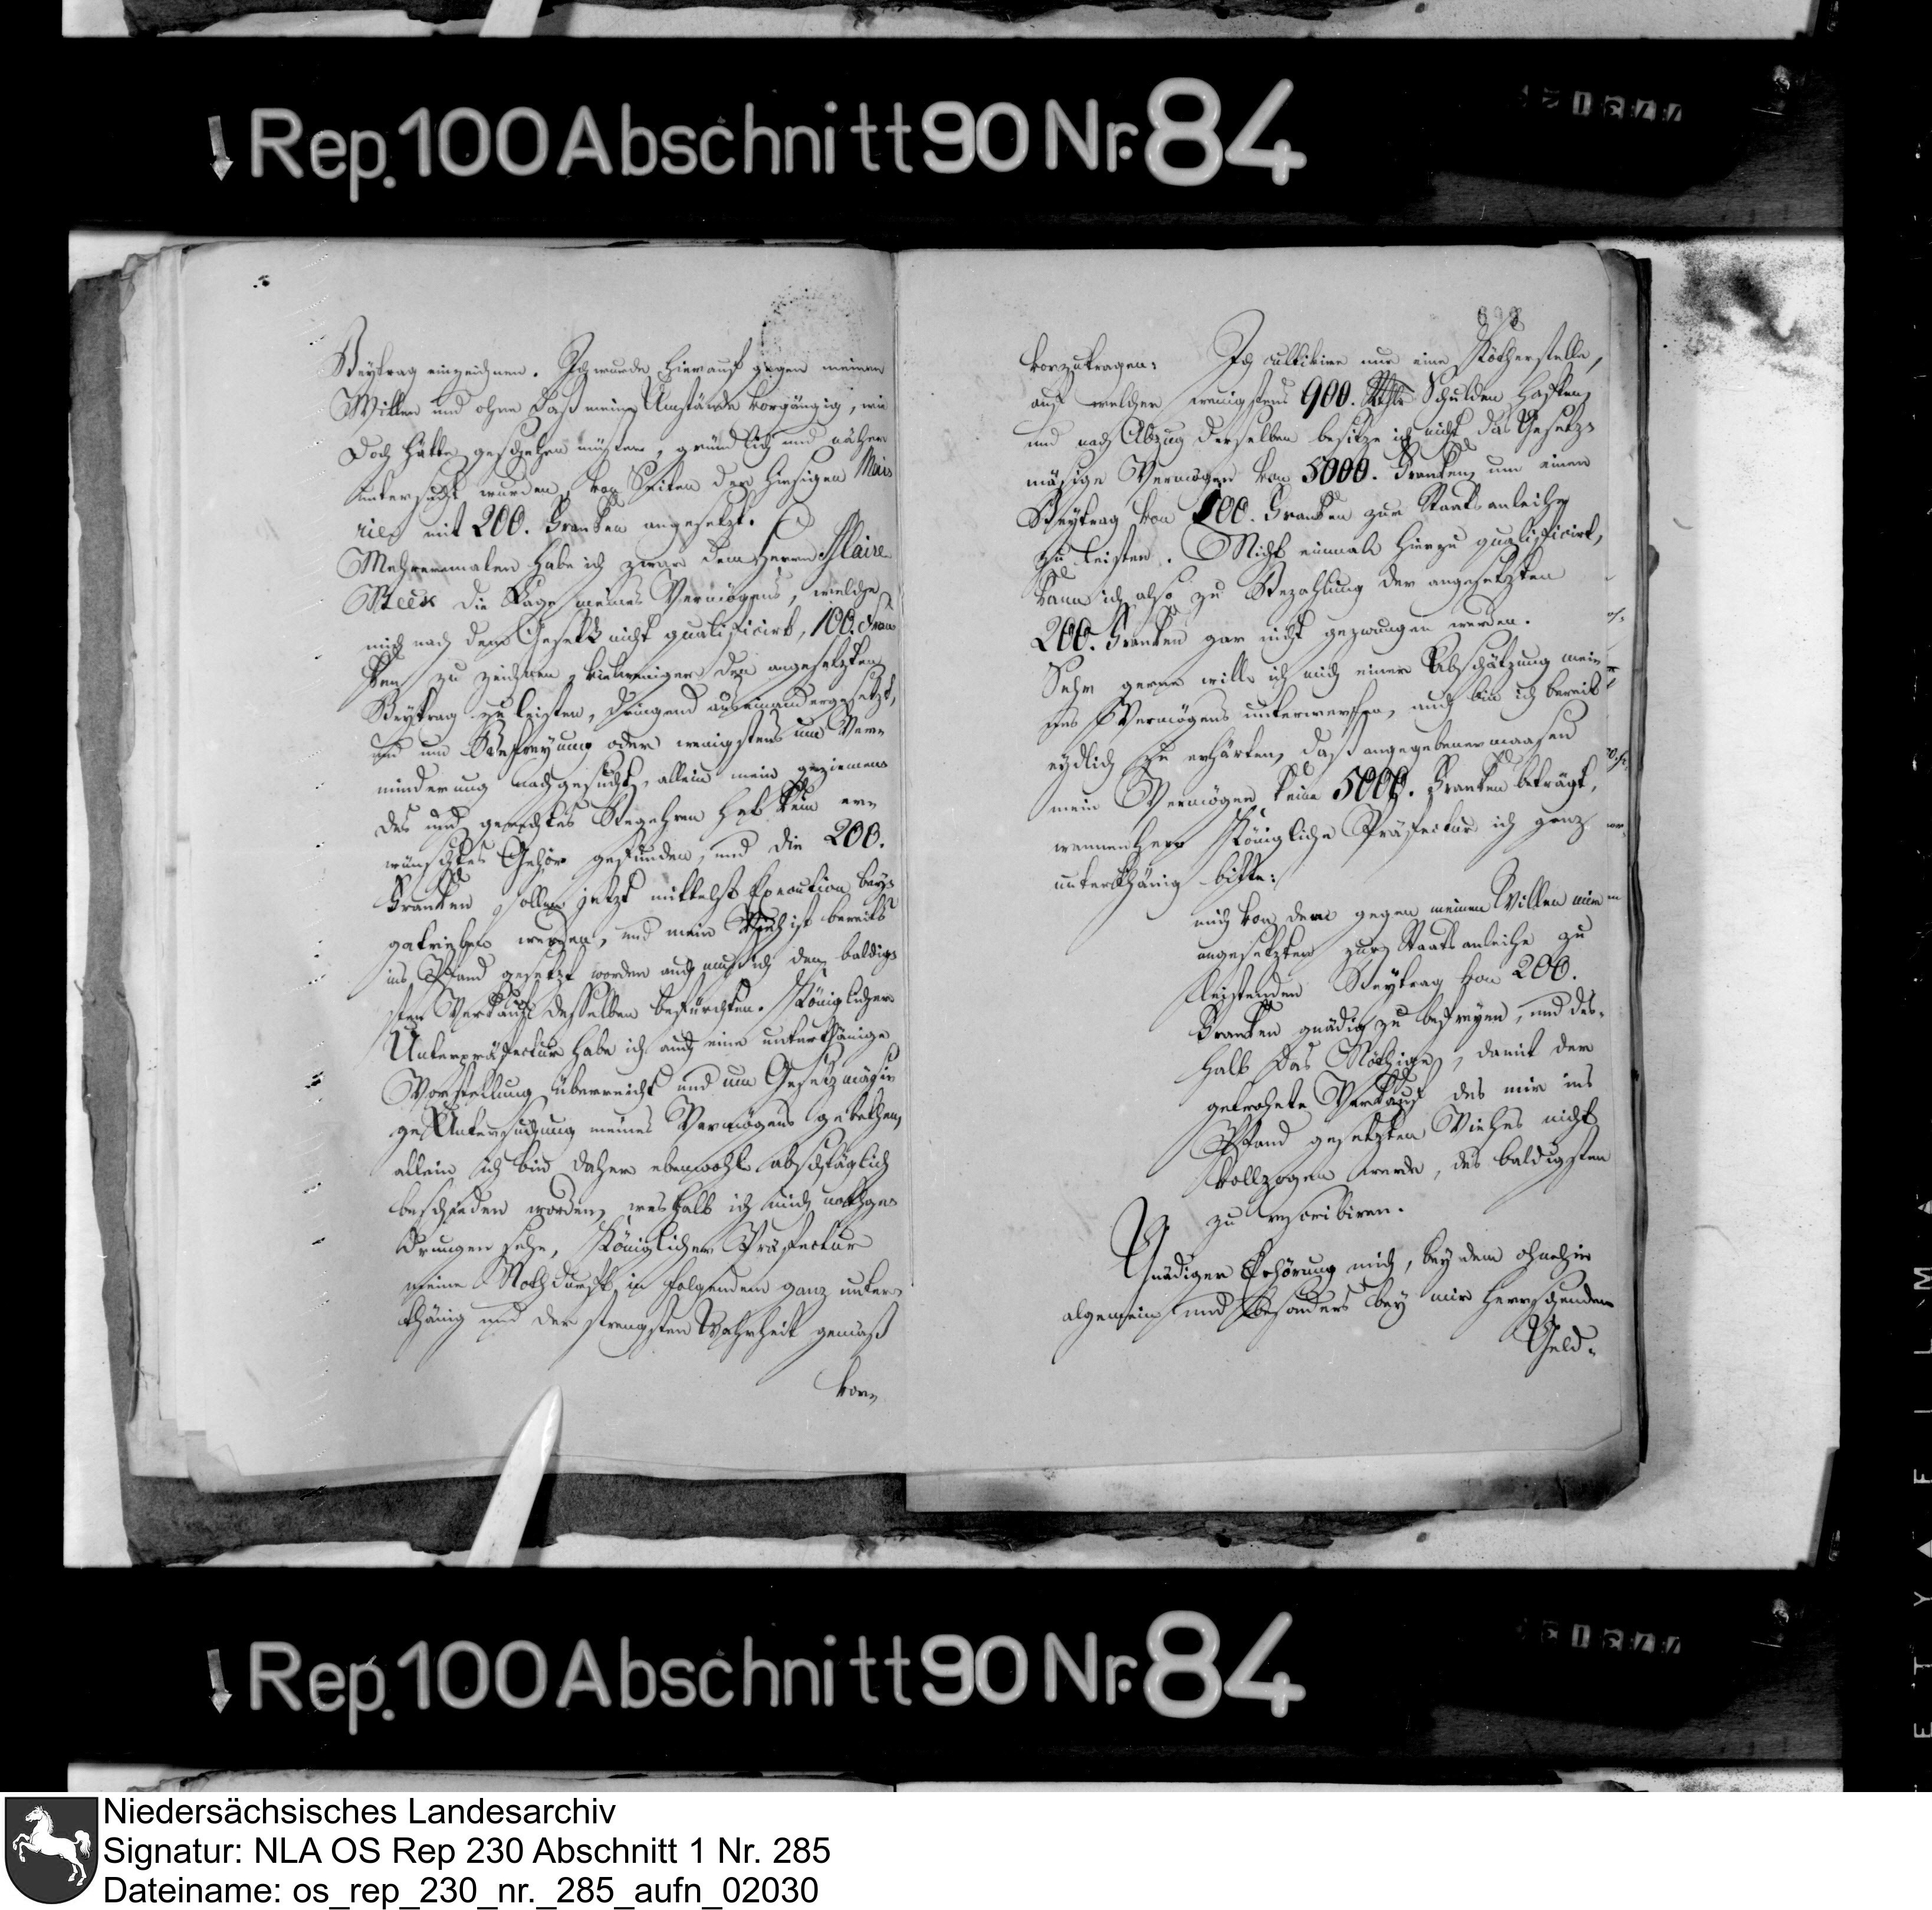 ↓ Rep. 100 Abschnitt 90 Nr. 84
Beytrag einzeichnen. Ich wurde hierauf gegen meinen
Willen und ohne daß meine Umstände vorgängig, wie
doch hätte geschehen müßen, gründlich und näher
untersucht wurden, von Seiten der hiesigen Mai=
rie mit 200. Franken angesetzt.
Mehreremalen habe ich zwar dem Herrn Maire
die Lage meines Vermögens, welche
mich nach dem Gesetz nicht qualificirt, 100. Fran=
ken zu zeichnen, vielweniger den angesetzten
Beytrag zu leisten, dringend auseinandergesetzt,
und um Befreyung oder wenigstens um Ver=
minderung nachgesucht, allein mein geziemen=
des und gerechtes Begehren hat kein er=
wünschtes Gehör gefunden, und die 200.
Franken sollen jetzt mittelst Execution bey=
getrieben werden, und mein Vieh ist bereits
ins Pfand gesetzt worden auch muß ich den baldig=
sten Verkauf desselben befürchten. Königlicher
Unterpräfectur habe ich auch eine unterthänige
Vorstellung überreicht und um Gesetzmäßi=
ge Untersuchung meines Vermögens gebethen,
allein ich bin daher ebenwohl abschläglich
beschieden worden, weshalb ich mich nothge=
drungen sehe, Königlicher Präfectur
meine Nothdurft in folgendem ganz unter=
thänig und der strengsten Wahrheit gemäß
vor=
vorzutragen: Ich cultivire nur eine Kötherstelle,
auf welcher wenigstens 900. Rthlr Schulden haften,
und nach Abzug derselben besitze ich nicht das Gesetz=
mäsige Vermögen von 5000. Franken, um einen
Beytrag von 100. Franken zur Staatsanleihe
zu leisten. Nicht einmal hierzu qualificirt,
kann ich also zu Bezahlung der angesetzten
200. Franken gar nicht gezwungen werden.
Sehr gerne will ich mich einer Abschätzung mei=
nes Vermögens unterwerfen, auch bin ich bereit
eydlich zu erhärten, daß angegebenermaasen
mein Vermögen keine 5000. Franken beträgt,
wannenhero Königliche Präfectur ich ganz
unterthänig bitte:
mich von dem gegen meinen Willen mir
angesetzten zur Staatsanleihe zu
leistenden Beytrag von 200.
Franken gnädig zu befreyen, und des=
halb das Nöthige, damit der
gedrohete Verkauf des mir ins
Pfand gesetzten Viehes nicht
vollzogen werde, des baldigsten
zu rescribiren.
Gnädiger Erhörung mich, bey dem ohnehin
algemein und besonders bey mir herrschenden
Geld=
↓ Rep. 100 Abschnitt 90 Nr. 84
Niedersächsisches Landesarchiv
Signatur: NLA OS Rep 230 Abschnitt 1 Nr. 285
Dateiname: os_rep_230_nr._285_aufn_02030